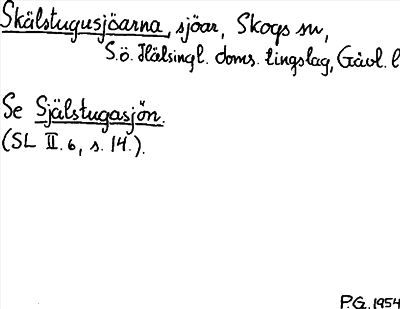 Skälstugusjöarna, sjöar, Skogs sn,
S.ö. Hälsingl. doms. tingslag, Gävl. l
Se Själstugasjön.
(SL II.6, s. 14.).
P.G. 1954